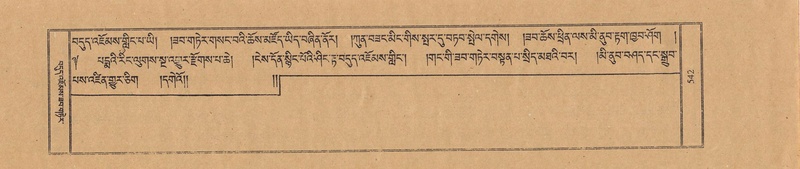 བདུད་འཇོམས་གླིང་པ་ཡི། །ཟབ་གཏེར་གསང་བའི་ཆོས་མཛོད་ཡིད་བཞིན་ནོར། །ཀུན་བཟང་མིང་གིས་སྤར་དུ་བཏབ་སྤེལ་དགེས། །ཟབ་ཆོས་ཕྲིན་ལས་མི་ནུབ་རྟག་ཁྱབ་ཤོག །
པདྨའི་རིང་ལུགས་སྔ་འགྱུར་རྫོགས་པ་ཆེ། །ངེས་དོན་སྙིང་པོའི་ཤིང་རྟ་བདུད་འཇོམས་གླིང་། །གང་གི་ཟབ་གཏེར་བསྟན་པ་སྲིད་མཐའི་བར། །མི་ནུབ་བཤད་དང་སྒྲུབ་
པས་འཛིན་གྱུར་ཅིག །དགེའོ།། །།
542